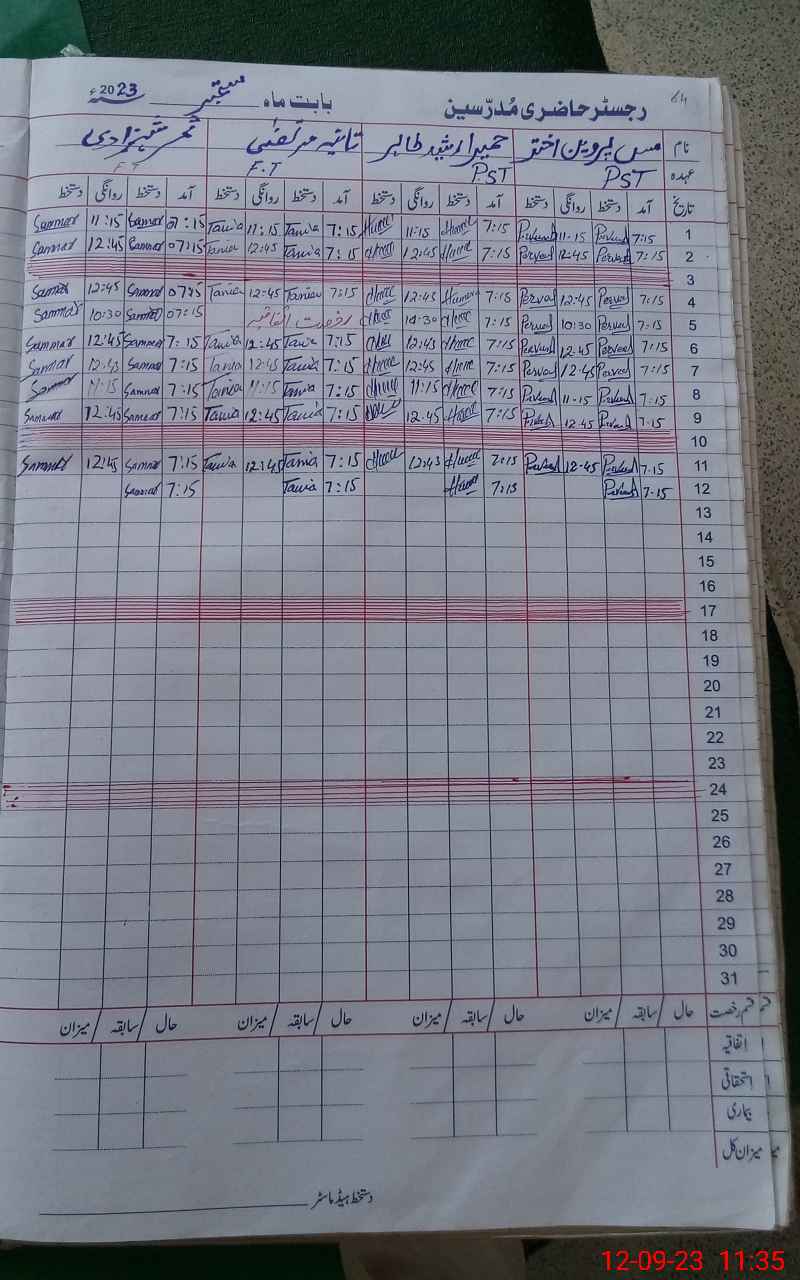 64
رجسٹر حاضری مُدرّسین بابت ماہ ستمبر 2023ء
نام مس پروین اختر حمیرا رشید طاہر تانیہ مرتضیٰ ثمر شہزادی
عہدہ PST PST F.T F.T
تاریخ آمد دستخط روانگی دستخط آمد دستخط روانگی دستخط آمد دستخط روانگی دستخط آمد دستخط روانگی دستخط
1 7:15 11-15 7:15 11:15 7:15 Tania 11:15 Tania 07:15 Sammar 11:15 Sammar
2 7:15 12:45 7:15 12:45 7:15 Tania 12:45 Tania 07:15 Sammar 12:45 Sammar
3
4 7:15 12:45 7:15 12:45 7:15 Tania 12:45 Tania 07:15 Sammar 12:45 Sammar
5 7:15 10:30 7:15 10:30 رخصت اتفاقیہ 07:15 Sammar 10:30 Sammar
6 7:15 12:45 7:15 12:45 7:15 Tania 12:45 Tania 7:15 Sammar 12:45 Sammar
7 7:15 12:45 7:15 12:45 7:15 Tania 12:45 Tania 7:15 Sammar 12:45 Sammar
8 7:15 11-15 7:15 11:15 7:15 Tania 11:15 Tania 7:15 Sammar 11:15 Sammar
9 7-15 12:45 7:15 12:45 7:15 Tania 12:45 Tania 7:15 Sammar 12:45 Sammar
10
11 7-15 12-45 7:15 12:45 7:15 Tania 12:45 Tania 7:15 Sammar 12:45 Sammar
12 7-15 7:15 7:15 Tania 7:15 Sammar
13
14
15
16
17
18
19
20
21
22
23
24
25
26
27
28
29
30
31
قسم رخصت حال / سابقہ / میزان حال / سابقہ / میزان حال / سابقہ / میزان حال / سابقہ / میزان
اتفاقیہ
استحقاقی
بیماری
میزان کل
دستخط ہیڈ ماسٹر
12-09-23 11:35